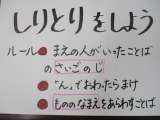 しりとりをしよう
ルール●まえの人がいったことば
のさいごのじ
●"ん"でおわったらまけ
●もののなまえをあらわすことば